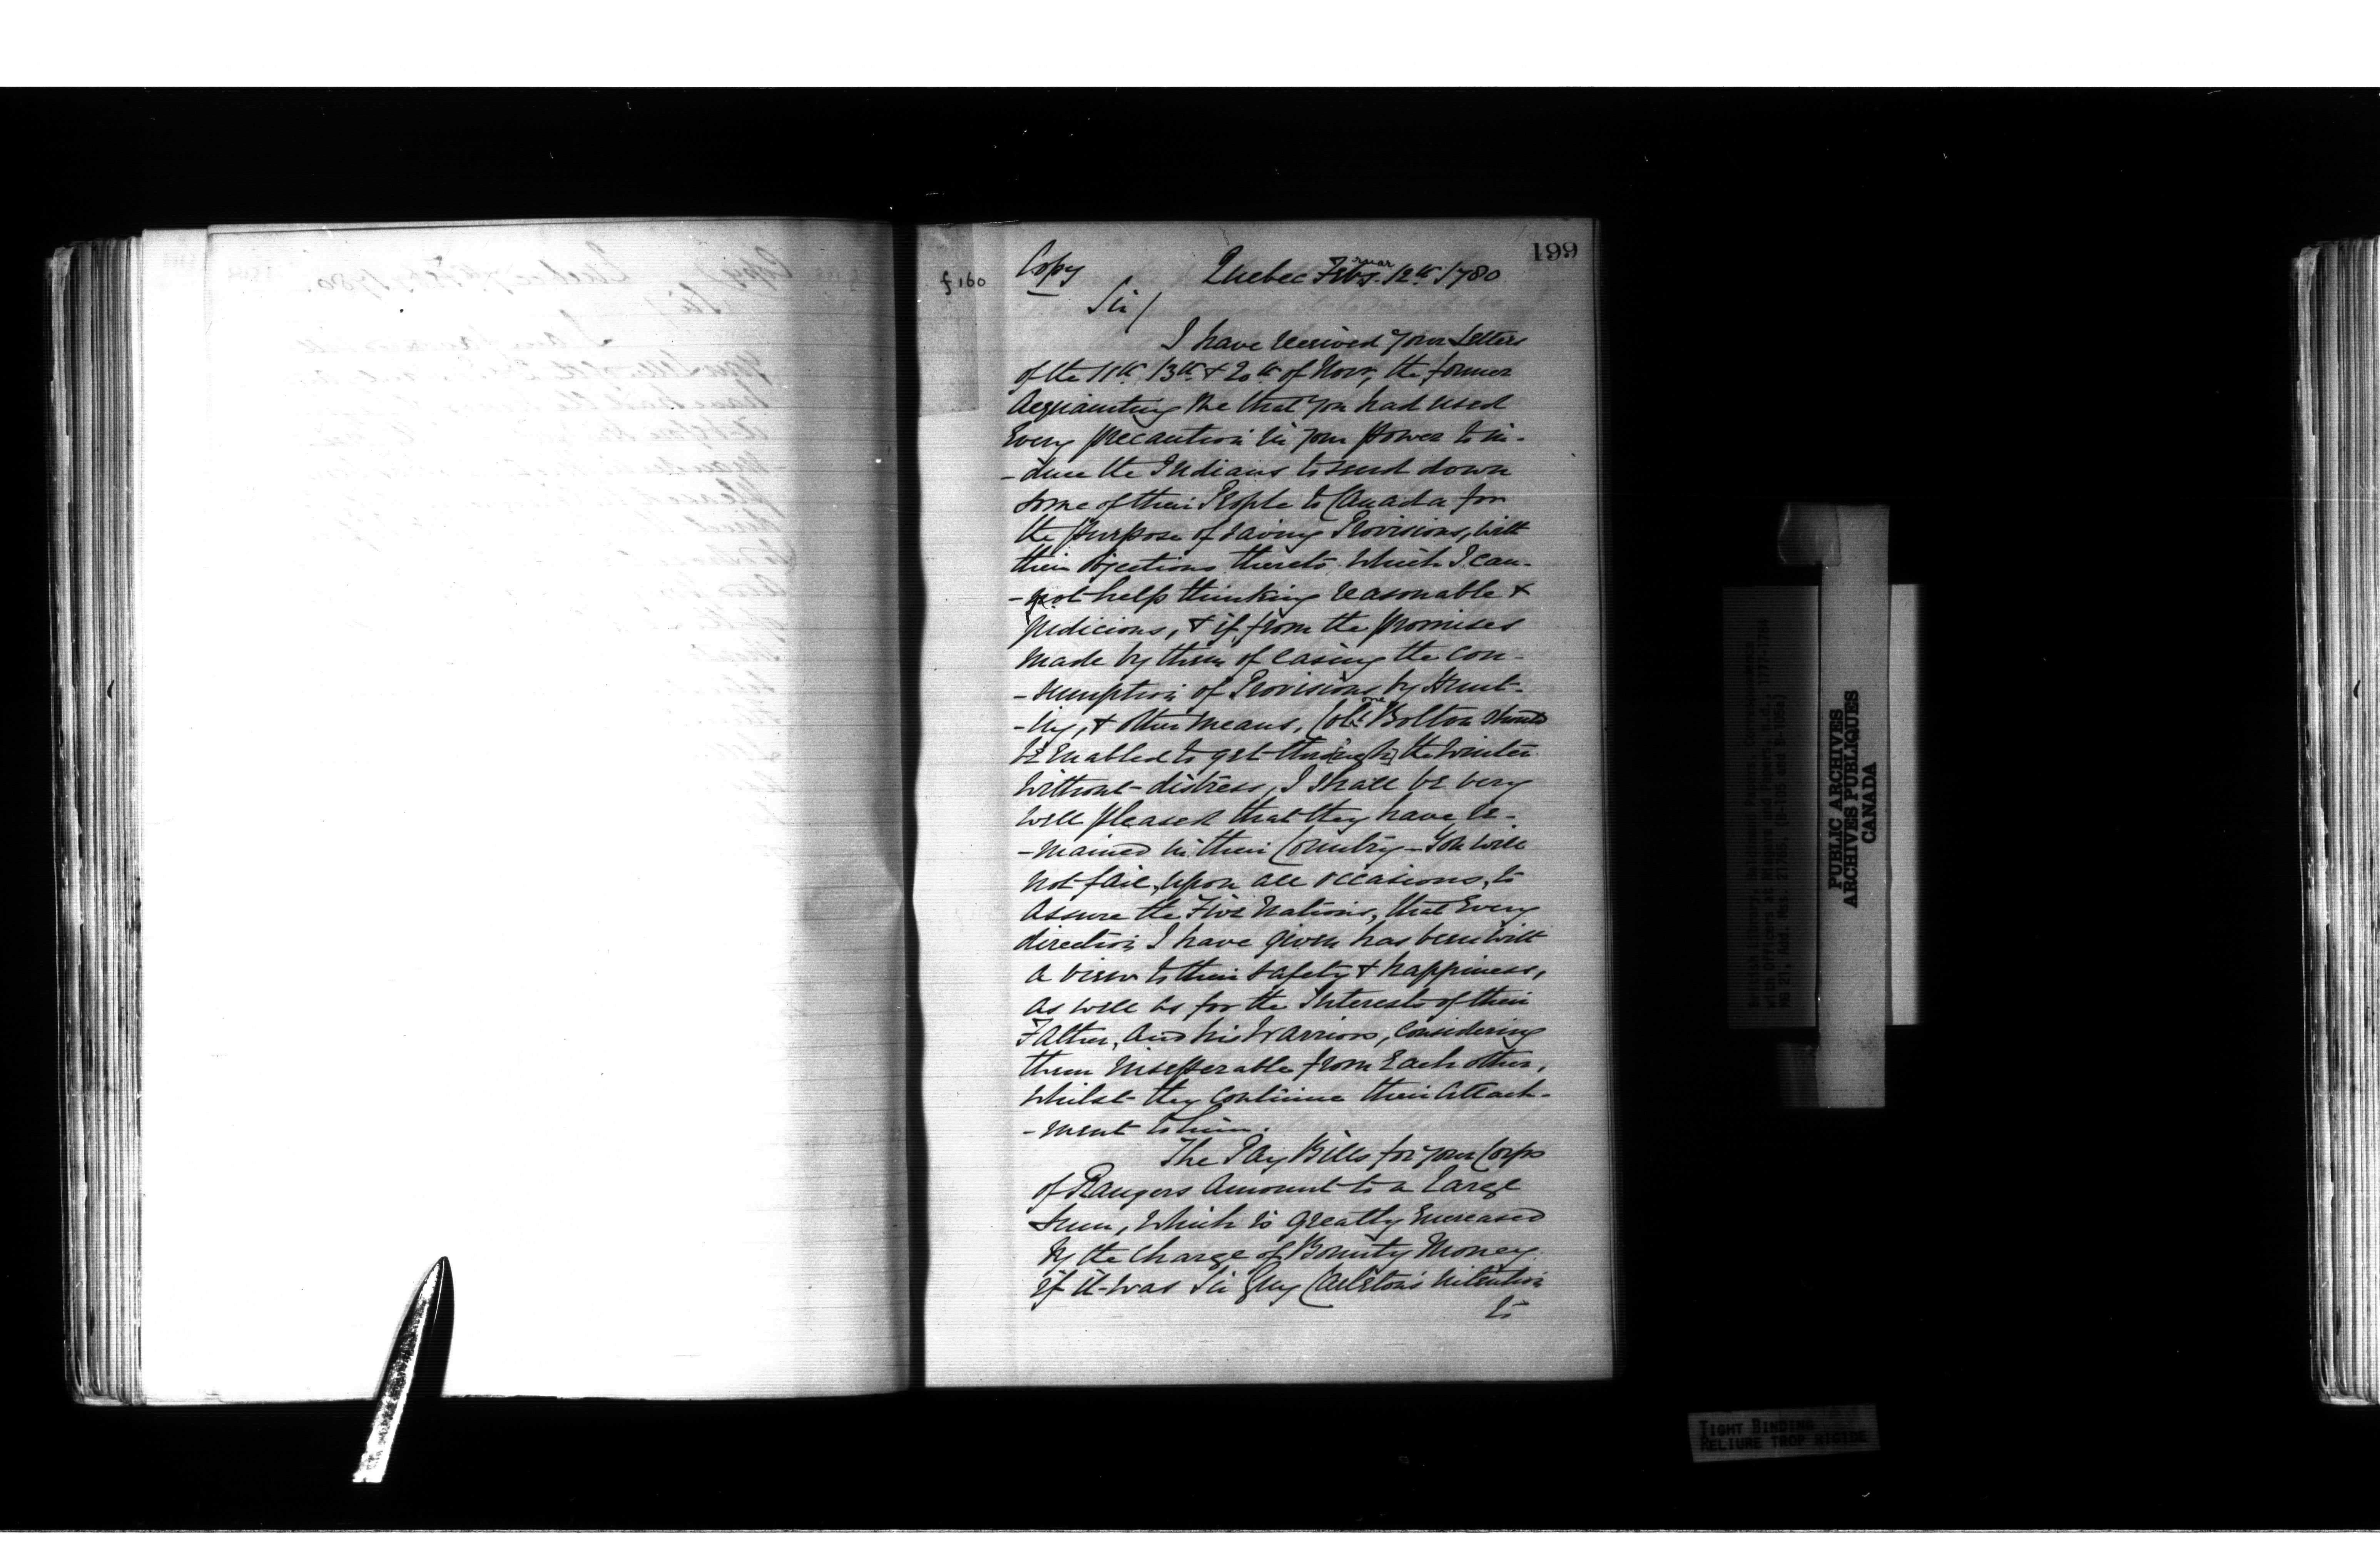 199
f 160
Copy
Quebec Febry. 12th 1780
Sir/
I have received your Letters
of the 11th, 13th & 20th of Novr, the former
Acquainting Me that you had used
Every precaution in your power to in-
-duce the Indians to send down
some of their People to Canada for
the purpose of saving Provisions, with
their objections thereto which I can-
-not help thinking reasonable &
judicious, & if from the promises
made by them of easing the con-
-sumption of Provisions by Hunt-
-ing, & other means, Colonel Bolton should
be enabled to get through the Winter
without distress, I shall be very
well pleased that they have re-
-mained in their Country - You will
not fail, upon all occasions, to
Assure the Five Nations, that Every
direction I have given has been with
a view to their safety & happiness,
as well as for the Interests of their
Father, and his Warriors, considering
them inseperable from Each other,
whilst they continue their Attach-
-ment to him.
The Pay Bills for your Corps
of Rangers Amount to a large
sum, which is greatly Encreased
by the Charge of Bounty Money.
if it was Sir Guy Carleton's intention
to
British Library, Haldimand Papers, Correspondence
with Officers at Niagara and Papers, n.d., 1777-1784
MG 21, Add. Mss. 21765, (B-105 and B-105a)
PUBLIC ARCHIVES
ARCHIVES PUBLIQUES
CANADA
TIGHT BINDING
RELIURE TROP RIGIDE